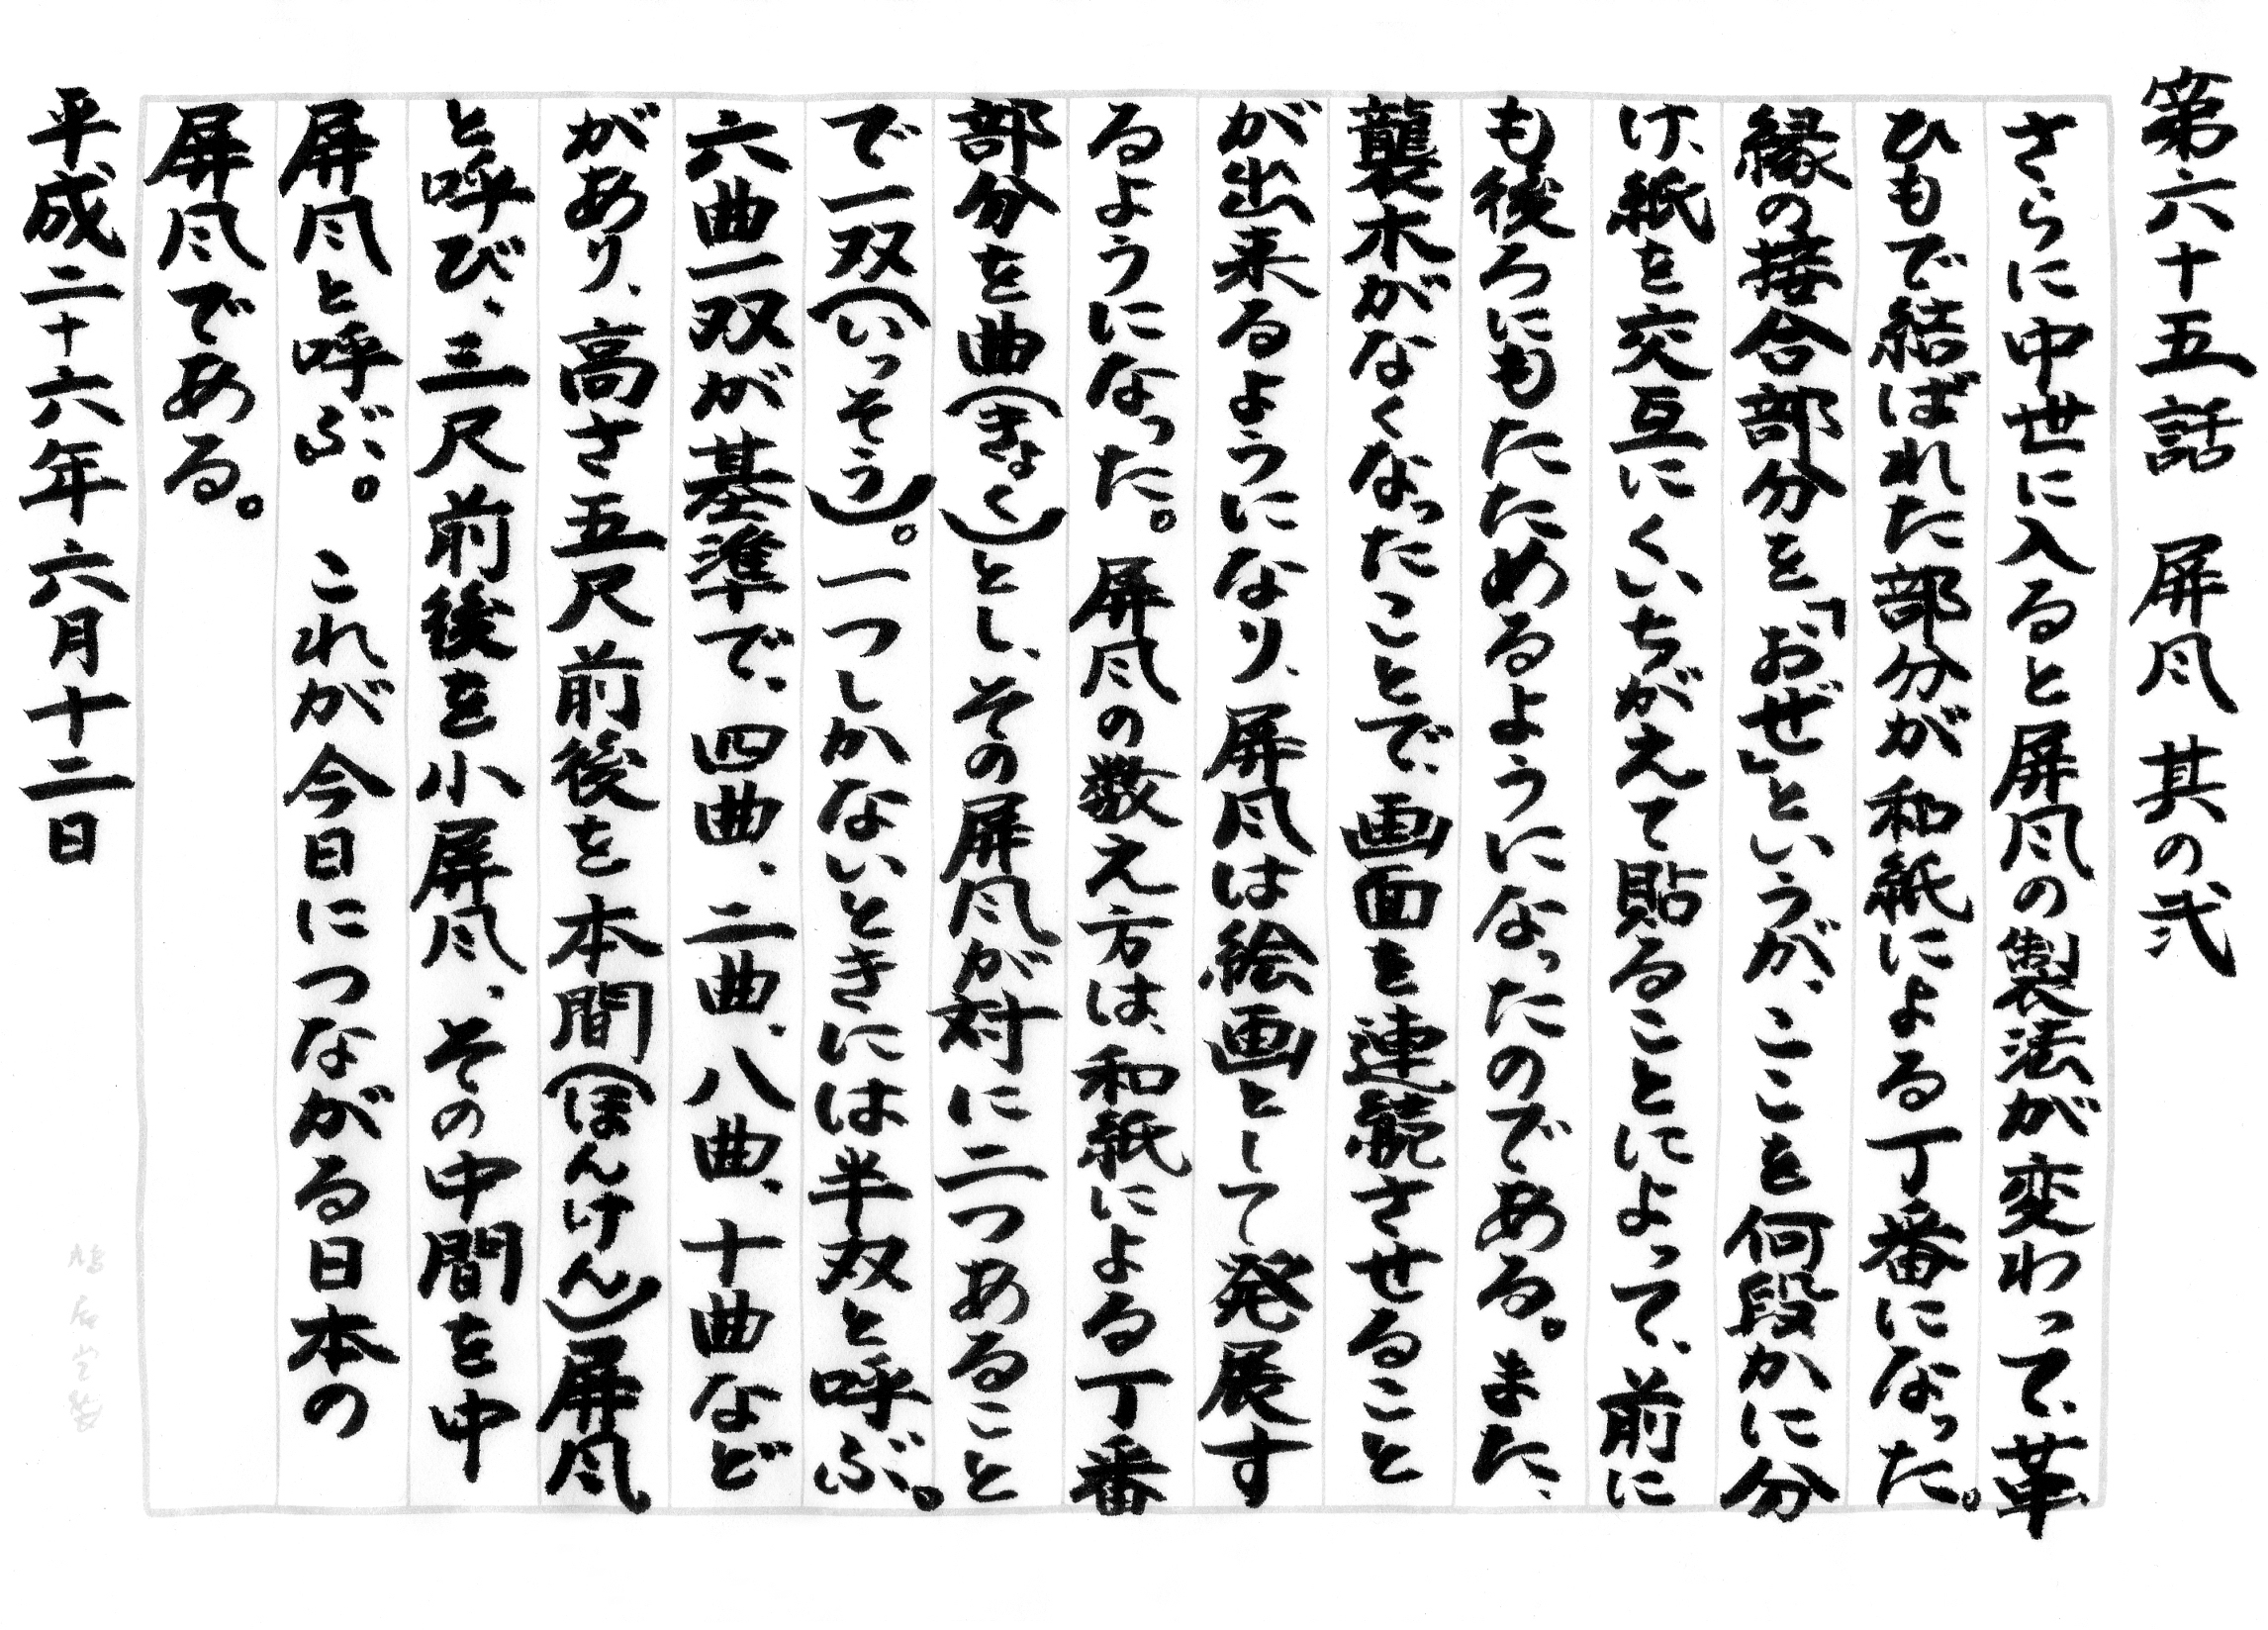 第六十五話　屏風　其の弐
さらに中世に入ると屏風の製法が変わって、革
ひもで結ばれた部分が和紙による丁番になった。
縁の接合部分を、「おぜ」というが、ここを何段かに分
け、紙を交互にくいちがえて貼ることによって、前に
も後ろにもたためるようになったのである。また、
襲木がなくなったことで、画面を連続させること
が出来るようになり、屏風は絵画として発展す
るようになった。屏風の数え方は、和紙による丁番
部分を曲（きょく）とし、その屏風が対に二つあること
で一双（いっそう）。一つしかないときには半双と呼ぶ。
六曲一双が基準で、四曲、二曲、八曲、十曲など
があり、高さ五尺前後を本間（ほんけん）屏風
と呼び、三尺前後を小屏風、その中間を中
屏風と呼ぶ。これが今日につながる日本の
屏風である。
平成二十六年六月十二日